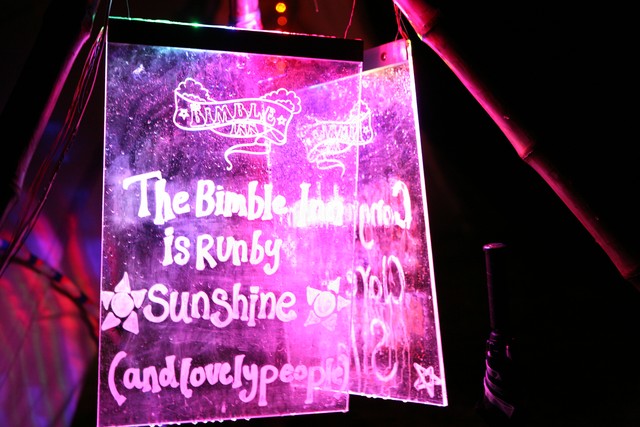 BIMBLE
INN
The Bimble Inn
is Run by
Sunshine
(and lovely people)